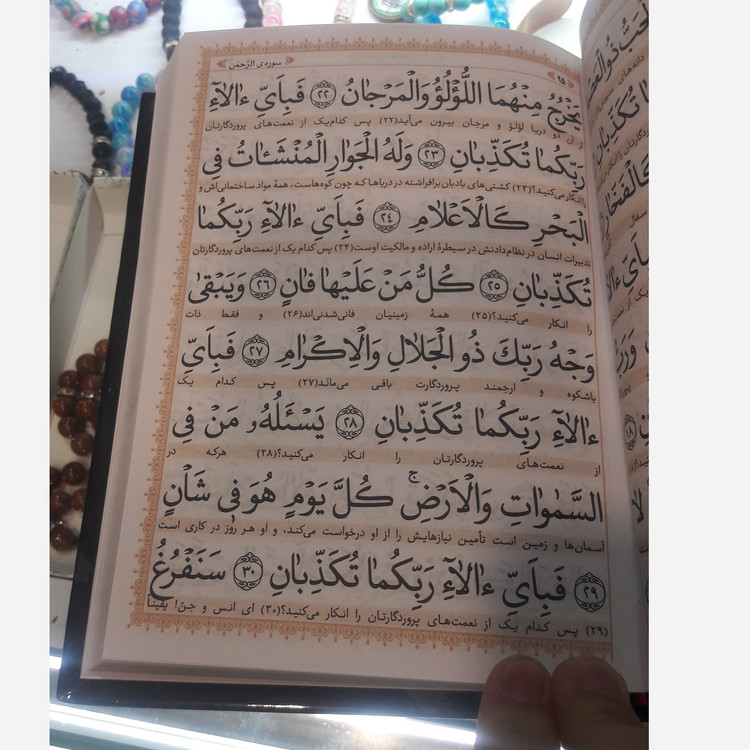 سوره‌ی الرَّحمٰن
۹۵
يَخْرُجُ مِنْهُمَا اللُّؤْلُؤُ وَالْمَرْجَانُ ﴿۲۲﴾ فَبِاَيِّ ءٰالٰٓاءِ
از آن دو دریا لؤلؤ و مرجان بیرون می‌آید(۲۲) پس کدام‌یک از نعمت‌های پروردگارتان
رَبِّكُمٰا تُكَذِّبٰانِ ﴿۲۳﴾ وَلَهُ الْجَوٰارِ الْمُنْشَئٰاتُ فِي
را انکار می‌کنید؟(۲۳) کشتی‌های بادبان برافراشته در دریاها که چون کوه‌هاست، همهٔ مواد ساختمانی‌اش و
الْبَحْرِ كَالْاَعْلٰامِ ﴿۲۴﴾ فَبِاَيِّ ءٰالٰٓاءِ رَبِّكُمٰا
تدبیرات انسان در نظام دادنش در سیطرهٔ اراده و مالکیت اوست(۲۴) پس کدام یک از نعمت‌های پروردگارتان
تُكَذِّبٰانِ ﴿۲۵﴾ كُلُّ مَنْ عَلَيْهٰا فٰانٍ ﴿۲۶﴾ وَيَبْقىٰ
را انکار می‌کنید؟(۲۵) همهٔ زمینیان فانی‌شدنی‌اند(۲۶) و فقط ذات
وَجْهُ رَبِّكَ ذُو الْجَلٰالِ وَالْاِكْرٰامِ ﴿۲۷﴾ فَبِاَيِّ
باشکوه و ارجمند پروردگارت باقی می‌ماند(۲۷) پس کدام یک
ءٰالٰٓاءِ رَبِّكُمٰا تُكَذِّبٰانِ ﴿۲۸﴾ يَسْئَلُهُ مَنْ فِي
از نعمت‌های پروردگارتان را انکار می‌کنید؟(۲۸) هرکه در
السَّمٰوٰاتِ وَالْاَرْضِ ۚ كُلَّ يَوْمٍ هُوَ فِي شَأْنٍ
آسمان‌ها و زمین است تأمین نیازهایش را از او درخواست می‌کند، و او هر روز در کاری است
﴿۲۹﴾ فَبِاَيِّ ءٰالٰٓاءِ رَبِّكُمٰا تُكَذِّبٰانِ ﴿۳۰﴾ سَنَفْرُغُ
(۲۹) پس کدام یک از نعمت‌های پروردگارتان را انکار می‌کنید؟(۳۰) ای انس و جن! یقیناً